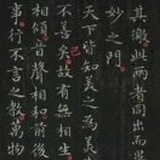 其徼此兩者同出而異
妙之門
天下皆知美之為美
已
不善矣故有無相生
相傾音聲相和前後
事行不言之教萬物